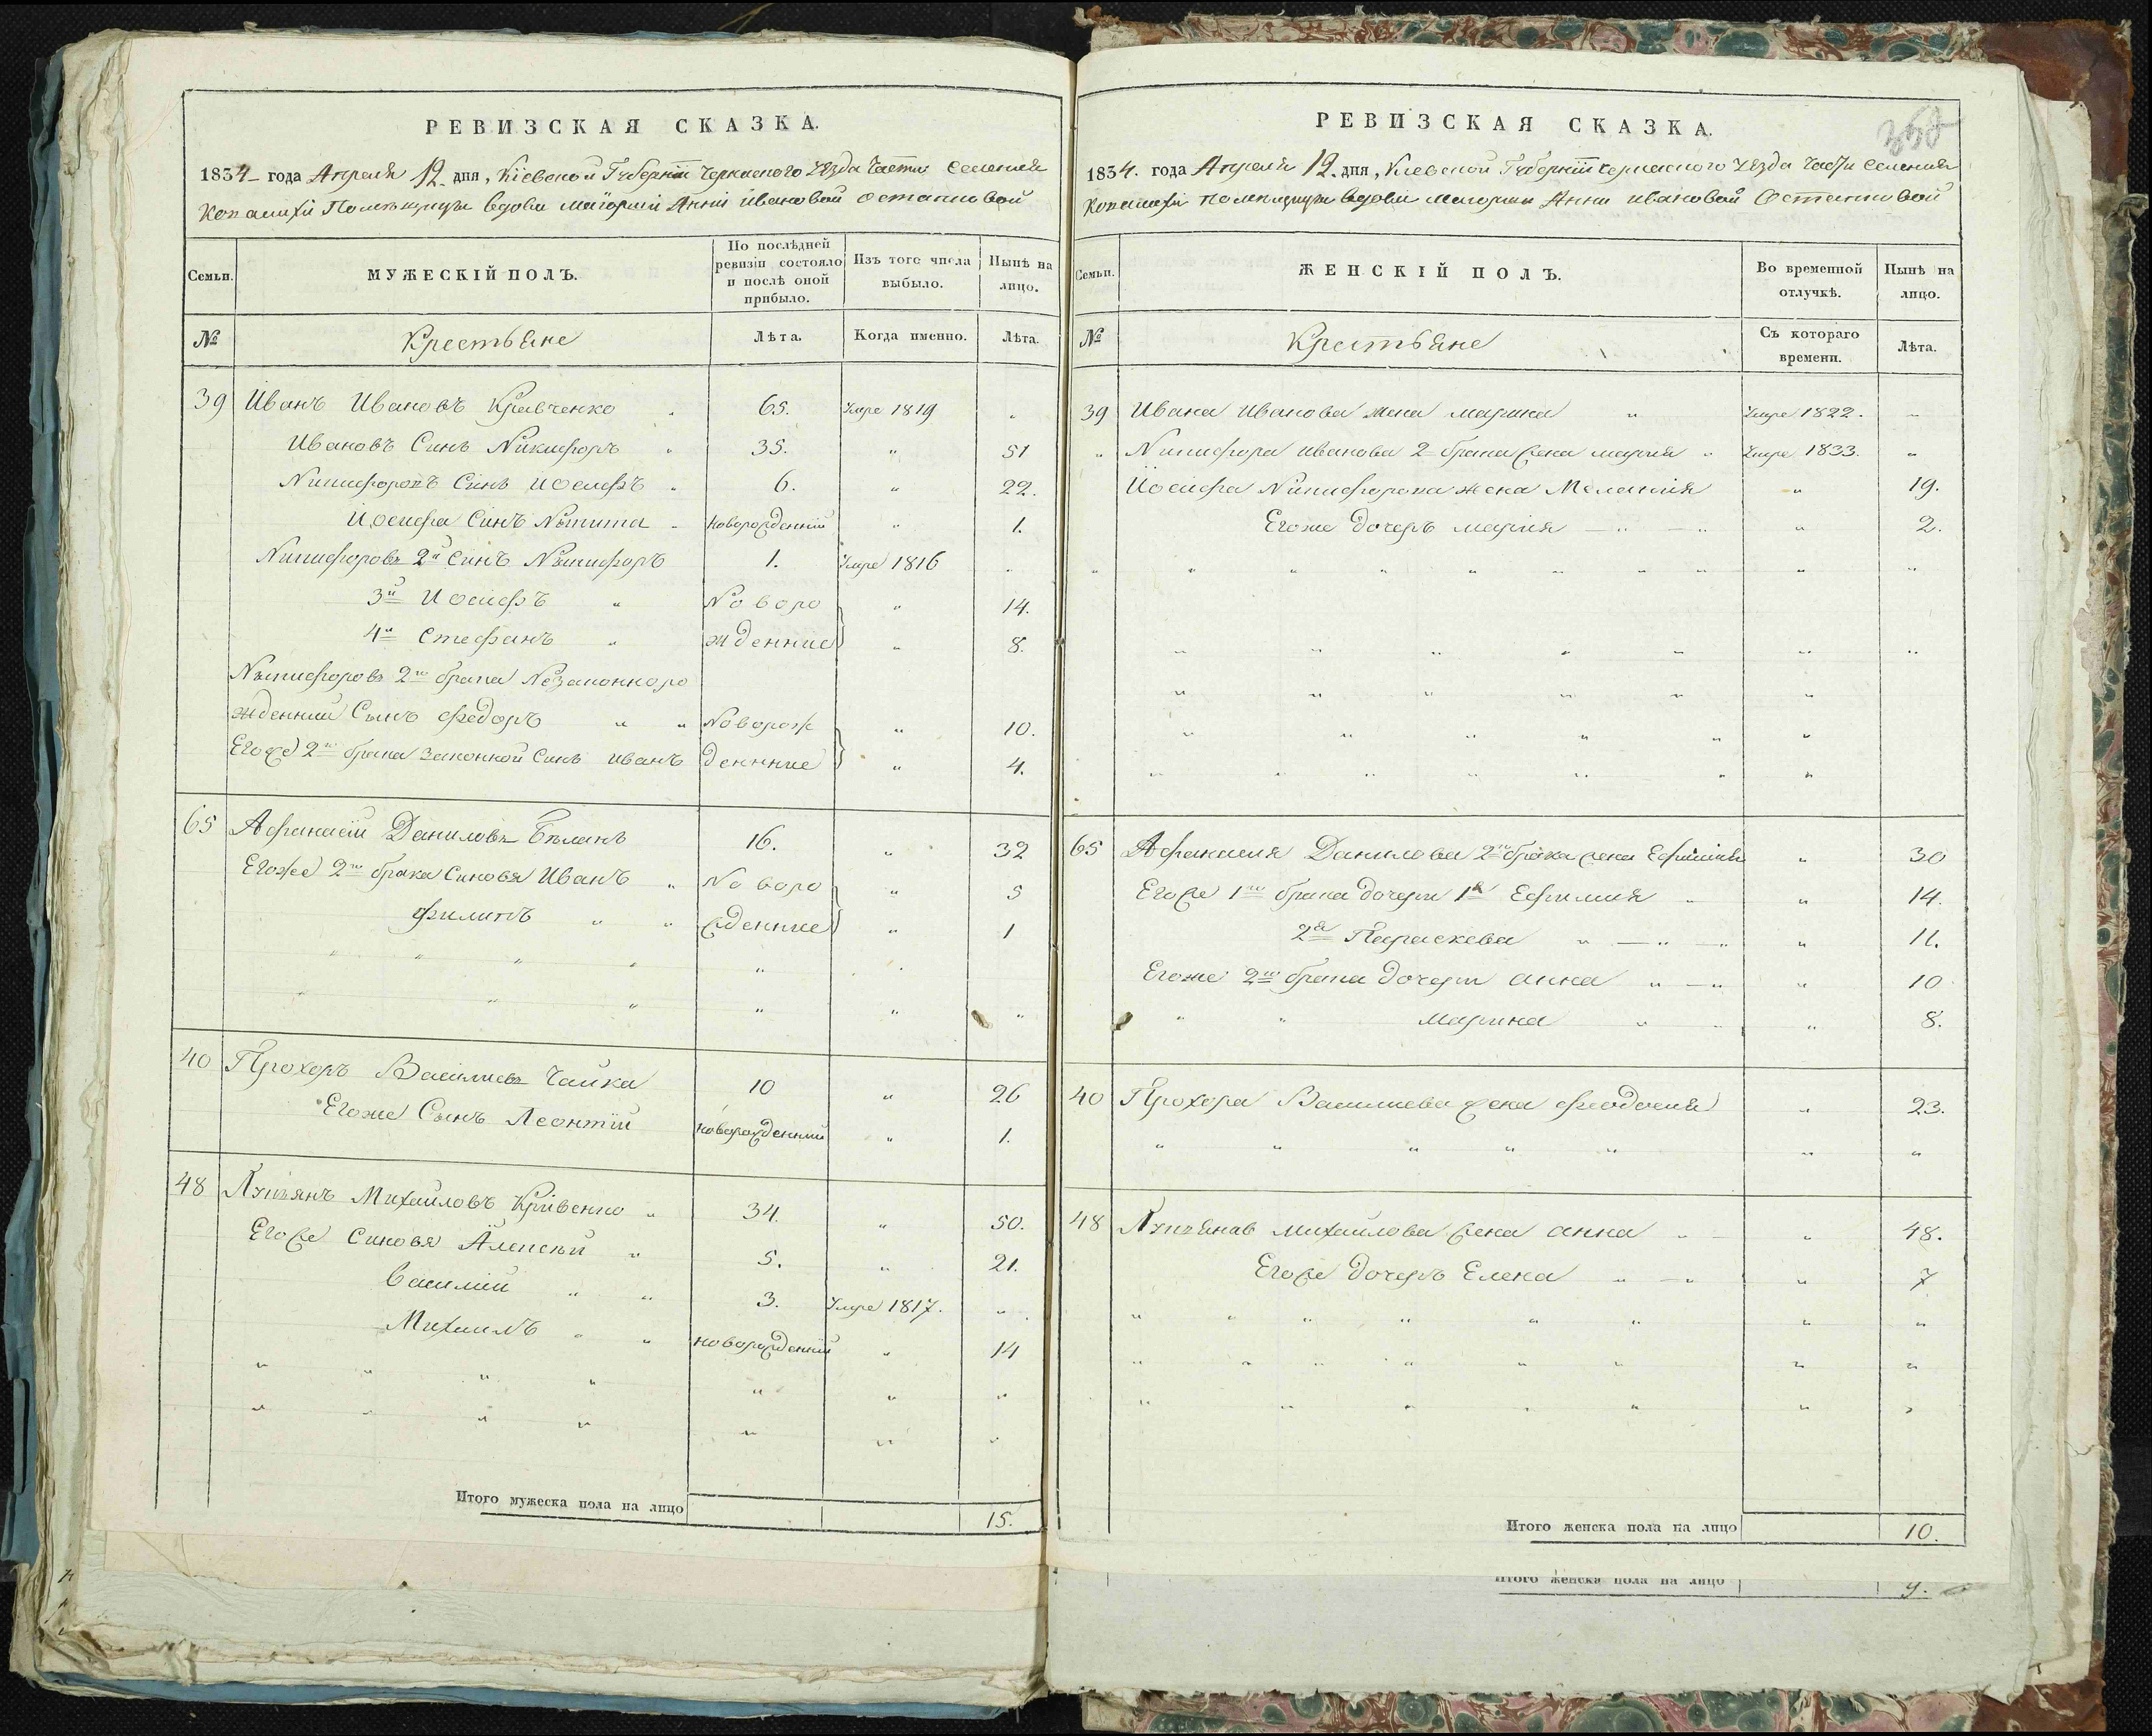 РЕВИЗСКАЯ СКАЗКА.
1834 года Апреля 12 дня, Кіевской Губерніи Черкаского Уезда Части Селенія
Помѣщицы вдовы маіорши Анны Ивановой Остаповой
Семьи.
МУЖЕСКІЙ ПОЛЪ.
По послѣдней ревизіи состояло и послѣ оной прибыло.
Изъ того числа выбыло.
Нынѣ на лицо.
№
Крестьяне
Лѣта.
Когда именно.
Лѣта.
39 Иванъ Ивановъ Кравченко " 65. Умре 1819 "
Ивановъ Синъ Никифоръ " 35. " 51
Никифоровъ Синъ Иосифъ " 6. " 22.
Иосифа Синъ Никита " новорожденній " 1.
Никифоровъ 2й Синъ Никифоръ 1. Умре 1816 "
3й Иосифъ " Новоро " 14.
4й Стефанъ " жденние " 8.
Никифоровъ 2го брака Незаконноро
жденний Сынъ Федоръ " " Новорож " 10.
Егоже 2го брака Законной Синъ Иванъ деннние " 4.
65 Афанасій Даниловъ Бѣланъ 16. " 32
Егоже 2го брака Синовя Иванъ " Новоро " 5
Филипъ " " жденние " 1
40 Прохоръ Василиевъ Чайка 10 " 26
Егоже Сынъ Леонтій новорожденний " 1.
48 Лукъянъ Михайловъ Кривенко " 34. " 50.
Егоже Синовя Алексѣй " 5. " 21.
Василій " " 3. Умре 1817. "
Михаилъ " " новорожденній " 14
Итого мужеска пола на лицо 15.
РЕВИЗСКАЯ СКАЗКА.
1834. года Апреля 12 дня, Киевской Губерніи Черкаского Уезда Части Селения
помѣщицы вдовы маіорши Анны Ивановой Остаповой
Семьи.
ЖЕНСКІЙ ПОЛЪ.
Во временной отлучкѣ.
Нынѣ на лицо.
№
Крестьяне
Съ котораго времени.
Лѣта.
39 Ивана Иванова жена марина " Умре 1822. "
" Никифора иванова 2 брака жена мария " Умре 1833. "
Иосифа Никифорова жена Мелания " 19.
Егоже дочерь мария " " " 2.
65 Афанасия Данилова 2го брака жена Ефимия " 30
Егоже 1го брака дочери 1я Ефимия " " 14.
2я Параскева " " " " 11.
Егоже 2го брака дочери анна " " " 10
" " Марина " " " 8.
40 Прохора Василиева жена Феодосия " 23.
48 Лукъянав михайлова жена анна " " 48.
Егоже дочерь Елена " " " 7
Итого женска пола на лицо 10.
Итого женска пола на лицо 9.